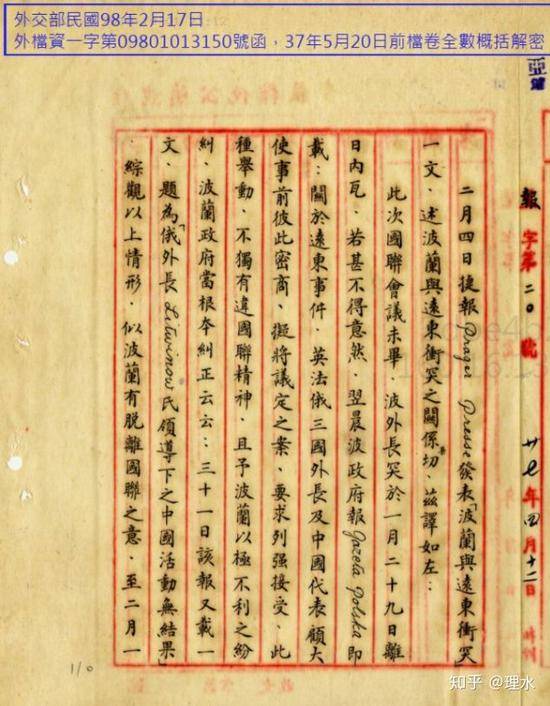 外交部民國98年2月17日
外檔資一字第09801013150號函，37年5月20日前檔卷全數概括解密
亞
報字第二〇號
廿七年四月十二日
二月四日捷報 Prager Presse 發表「波蘭與遠東衝突
一文、述波蘭與遠東衝突之關係切、茲譯如左：
此次國聯會議未畢、波外長突於一月二十九日離
日內瓦、若甚不得意然、翌晨波政府報 Gazeta Polska 即
載：關於遠東事件、英法俄三國外長及中國代表顧大
使事前彼此密商、擬將議定之案、要求列强接受、此
種舉動、不獨有違國聯精神、且予波蘭以極不利之紛
糾、波蘭政府當根本糾正云云：三十一日該報又載一
文、題為「俄外長 Litwinow 氏領導下之中國活動無結果」
綜觀以上情形、似波蘭有脫離國聯之意、至二月一
110
知乎 @理水